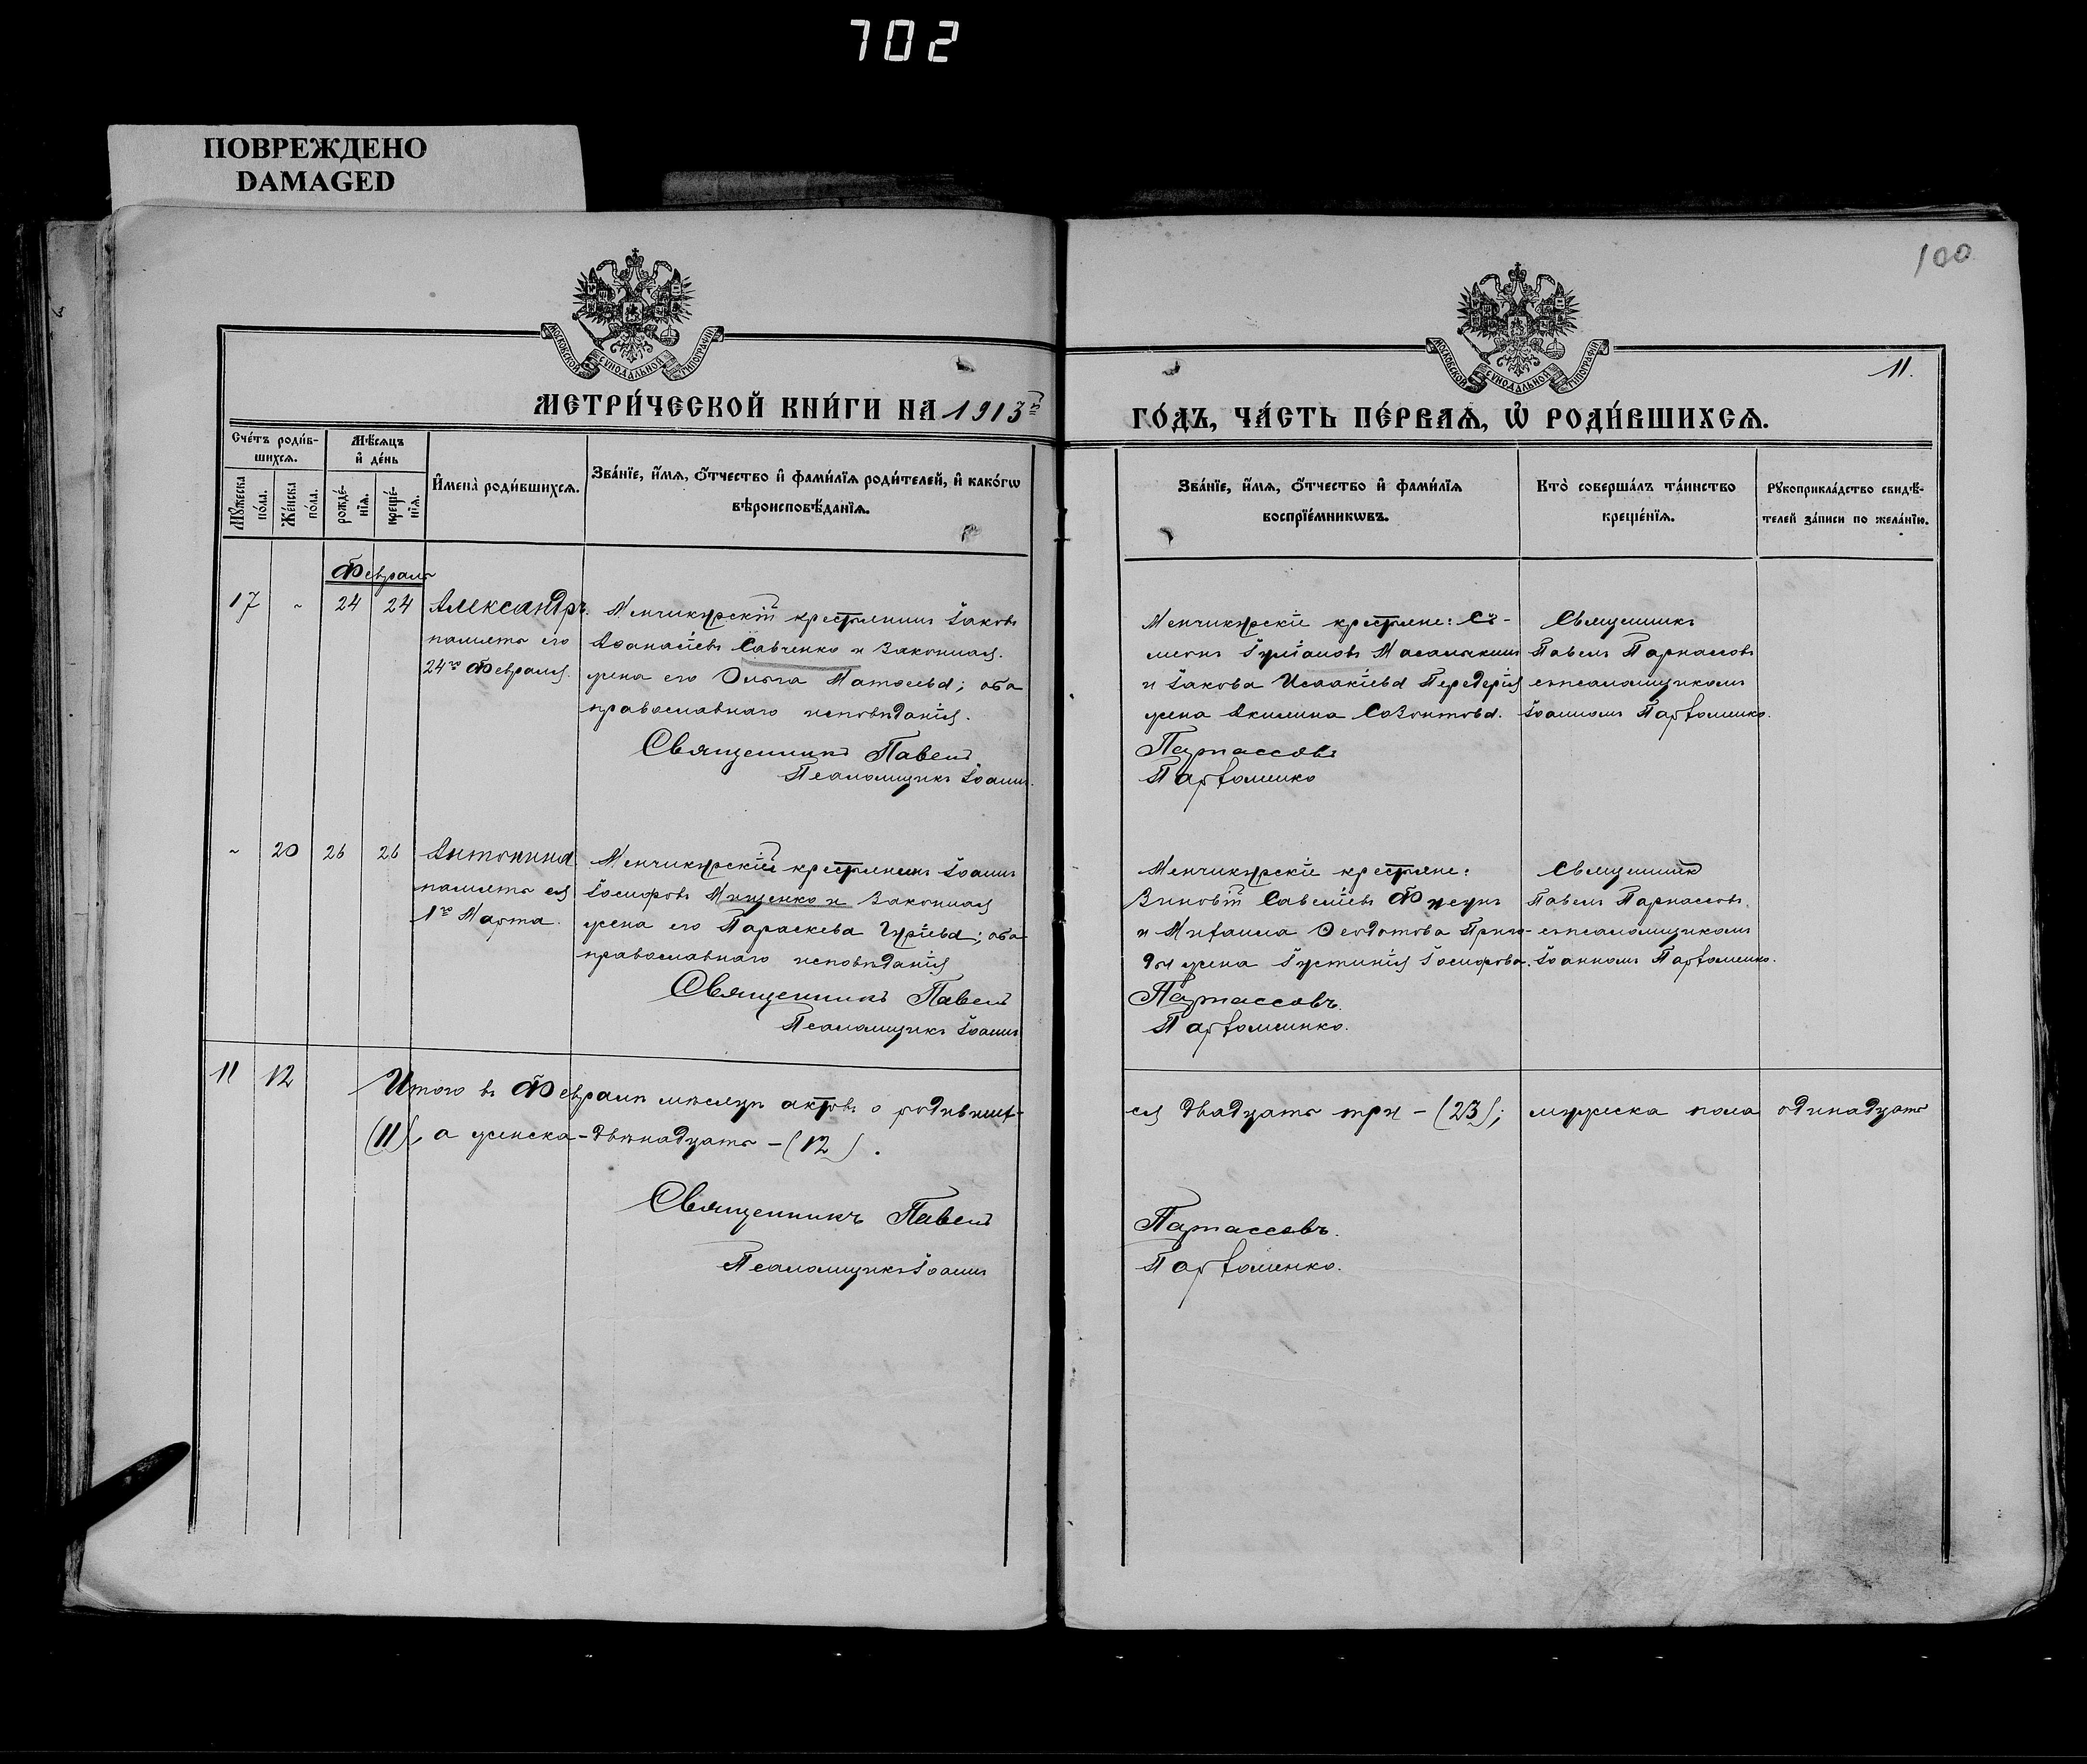 702
ПОВРЕЖДЕНО
DAMAGED
100
МОСКОВСКОЙ СѴНОДАЛЬНОЙ ТИПОГРАФІИ
МОСКОВСКОЙ СѴНОДАЛЬНОЙ ТИПОГРАФІИ
11.
МЕТРИ́ЧЕСКОЙ КНИ́ГИ НА 1913й
ГО́ДЪ, ЧА́СТЬ ПЕ́РВАѦ, Ѡ҆ РОДИ́ВШИХСѦ.
Сче́тъ роди́в-
шихсѧ.
Мѣ́сѧцъ
и҆ де́нь
Мꙋ́жеска
по́ла.
Же́нска
по́ла.
рожде́-
нїѧ.
креще́-
нїѧ.
И҆мена̀ роди́вшихсѧ.
Зва́нїе, и҆́мѧ, ѻ҆́тчество и҆ фами́лїѧ роди́телей, и҆ како́гѡ
вѣроисповѣ́данїѧ.
Зва́нїе, и҆́мѧ, ѻ҆́тчество и҆ фами́лїѧ
воспрїе́мникѡвъ.
Кто̀ соверша́лъ та́инство
креще́нїѧ.
Рꙋкоприкла́дство свидѣ́-
телей за́писи по жела́нїю.
Февраль
17 " 24 24 Александръ.
память его
24го Февраля.
Менчикурскій крестьянинъ Іаковъ
Аѳанасіевъ Савченко и законная
жена его Ольга Матѳеева; оба
православнаго исповѣданія.
Священникъ Павелъ
Псаломщикъ Іоаннъ
Менчикурскіе крестьяне: Сѵ-
меонъ Іуліановъ
и Іакова Исаакіева Передерія
жена Акилина Созонтова.
Парнассовъ
Парѳоменко
Священникъ
Павелъ Парнассовъ
съ псаломщикомъ
Іоанномъ Парѳоменко.
" 20 26 26 Антонина
память ея
1го Марта.
Менчикурскій крестьянинъ Іоаннъ
Іосифовъ Мищенко и законная
жена его Параскева Гуріева; оба
православнаго исповѣданія
Священникъ Павелъ
Псаломщикъ Іоаннъ
Менчикурскіе крестьяне:
Зиновій Савеліевъ
и Михаила Ѳеодотова
жена Іустинія Іосифова.
Парнассовъ.
Парѳоменко.
Священникъ
Павелъ Парнассовъ
съ псаломщикомъ
Іоанномъ Парѳоменко.
11 12
Итого въ Февралѣ мѣсяцѣ актовъ о родивших-
ся двадцать три – (23); мужеска пола одинадцать
(11), а женска – двѣнадцать – (12).
Священникъ Павелъ
Парнассовъ.
Псаломщикъ Іоаннъ
Парѳоменко.